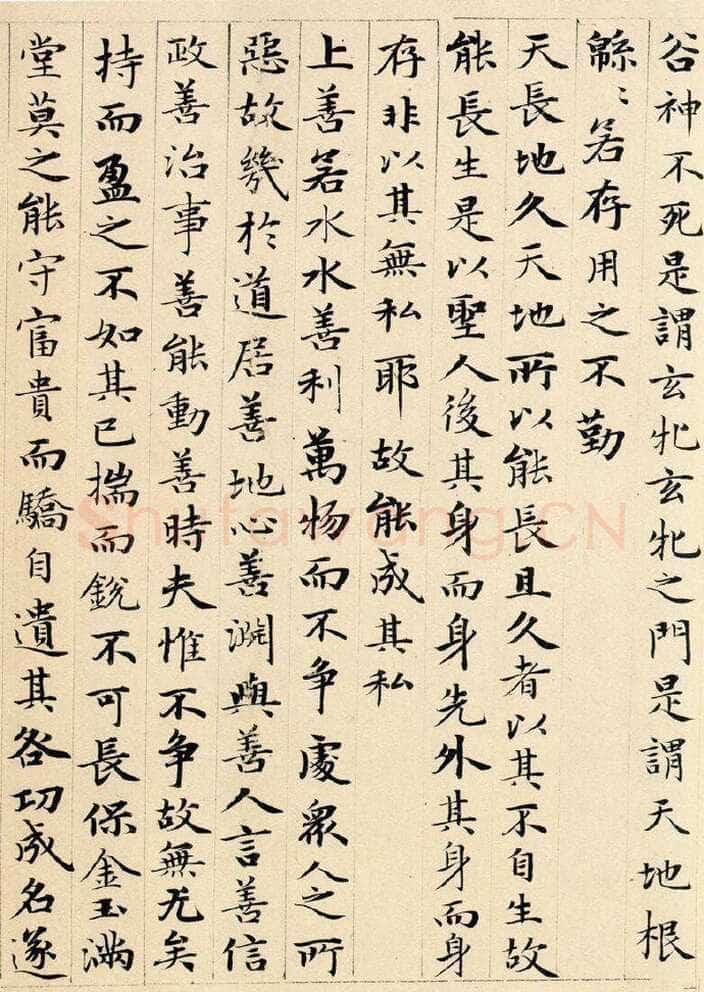 谷神不死是謂玄牝玄牝之門是謂天地根
緜〻若存用之不勤
天長地久天地所以能長且久者以其不自生故
能長生是以聖人後其身而身先外其身而身
存非以其無私耶故能成其私
上善若水水善利萬物而不争處衆人之所
惡故幾於道居善地心善渕與善人言善信
政善治事善能動善時夫惟不争故無尤矣
持而盈之不如其已揣而銳不可長保金玉滿
堂莫之能守富貴而驕自遺其咎功成名遂